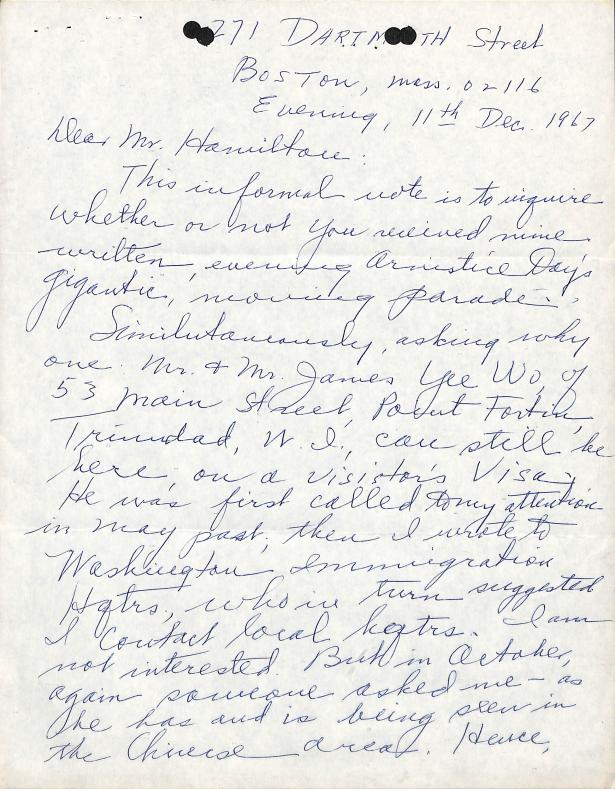 271 DARTMOUTH Street
BOSTON, Mass. 02116
Evening, 11th Dec. 1967
Dear Mr. Hamilton:
This informal note is to inquire
whether or not you received mine
written, evening Armistice Day's
gigantic, moving parade.
Similutaneously, asking why
one Mr. & Mr. James Yee Wo, of
53 Main Street, Point Fortin,
Trinidad, W. I., can still be
here, on a visistor's Visa,
He was first called to my attention
in May past, then I wrote to
Washington Immigration
Hqtrs., who in turn suggested
I contact local hqtrs. I am
not interested. But in October,
again someone asked me - as
he has and is being seen in
the Chinese area. Hence,